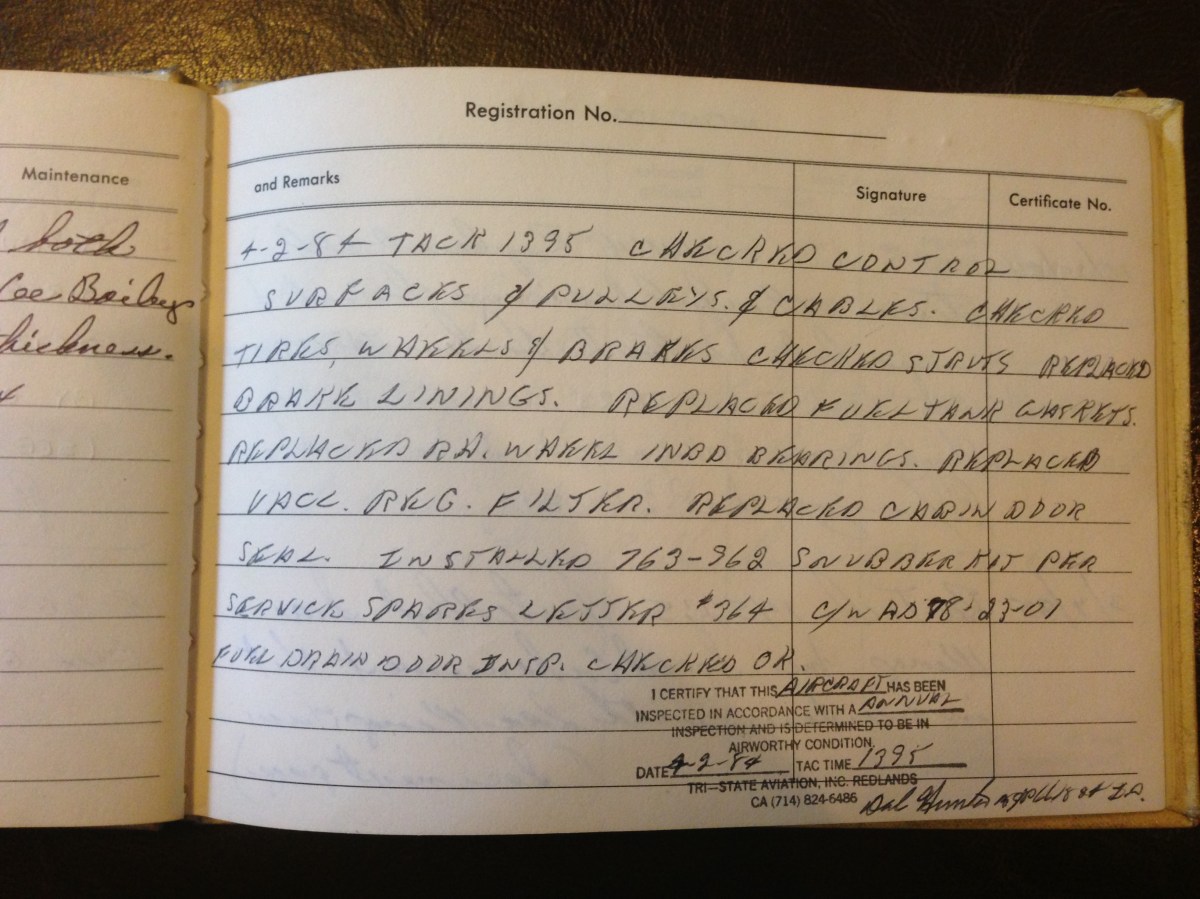 Registration No.
Maintenance
and Remarks
Signature
Certificate No.
both
Lee Baileys
thickness.
4-2-84 TACK 1395 CHECKED CONTROL
SURFACES & PULLEYS. & CABLES. CHECKED
TIRES, WHEELS & BRAKES CHECKED STRUTS REPLACED
BRAKE LININGS. REPLACED FUEL TANK GASKETS.
REPLACED RH. WHEEL INBD BEARINGS. REPLACED
VACC. REG. FILTER. REPLACED CABIN DOOR
SEAL. INSTALLED 763-962 SNUBBER KIT PER
SERVICE SPARES LETTER #364 C/W AD 78-23-01
FUEL DRAIN DOOR INSP. CHECKED OK.
I CERTIFY THAT THIS AIRCRAFT HAS BEEN
INSPECTED IN ACCORDANCE WITH A ANNUAL
INSPECTION AND IS DETERMINED TO BE IN
AIRWORTHY CONDITION.
DATE 4-2-84 TAC TIME 1395
TRI-STATE AVIATION, INC. REDLANDS
CA (714) 824-6486 Dal Hunter I.A.